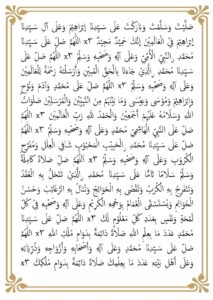 صَلَّيْتَ وَسَلَّمْتَ وَبَارَكْتَ عَلَى سَيِّدِنَا إِبْرَاهِيْمَ وَعَلَى آلِ سَيِّدِنَا
إِبْرَاهِيْمَ فِيْ الْعَالَمِيْنَ إِنَّكَ حَمِيْدٌ مَجِيْدٌ x٣ اَللّٰهُمَّ صَلِّ عَلَى سَيِّدِنَا
مُحَمَّدٍ النَّبِيِّ الْأُمِّيِّ وَعَلَى آلِهِ وَصَحْبِهِ وَسَلِّمْ x٣ اَللّٰهُمَّ صَلِّ عَلَى
سَيِّدِنَا مُحَمَّدٍ الَّذِيْ جَاءَنَا بِالْحَقِّ الْمُبِيْنِ وَأَرْسَلْتَهُ رَحْمَةً لِلْعَالَمِيْنَ
وَعَلَى آلِهِ وَصَحْبِهِ وَسَلِّمْ x٣ اَللّٰهُمَّ صَلِّ عَلَى مُحَمَّدٍ وَآدَمَ وَنُوْحٍ
وَإِبْرَاهِيْمَ وَمُوْسَى وَعِيْسَى وَمَا بَيْنَهُمْ مِنَ النَّبِيِّيْنَ وَالْمُرْسَلِيْنَ صَلَوَاتُ
اللهِ وَسَلَامُهُ عَلَيْهِمْ أَجْمَعِيْنَ وَالْحَمْدُ لِلّٰهِ رَبِّ الْعَالَمِيْنَ x٣ اَللّٰهُمَّ
صَلِّ عَلَى النَّبِيِّ الْهَاشِمِيِّ مُحَمَّدٍ وَعَلَى آلِهِ وَصَحْبِهِ وَسَلِّمْ x٣ اَللّٰهُمَّ
صَلِّ عَلَى سَيِّدِنَا مُحَمَّدٍ الْحَبِيْبِ الْمَحْبُوْبِ شَافِي الْعِلَلِ وَمُفَرِّجِ
الْكُرُوْبِ وَعَلَى آلِهِ وَصَحْبِهِ وَسَلِّمْ x٣ اَللّٰهُمَّ صَلِّ صَلَاةً كَامِلَةً
وَسَلِّمْ سَلَامًا تَامًّا عَلَى سَيِّدِنَا مُحَمَّدٍ الَّذِيْ تَنْحَلُّ بِهِ الْعُقَدُ
وَتَنْفَرِجُ بِهِ الْكُرَبُ وَتُقْضَى بِهِ الْحَوَائِجُ وَتُنَالُ بِهِ الرَّغَائِبُ وَحُسْنُ
الْخَوَاتِمِ وَيُسْتَسْقَى الْغَمَامُ بِوَجْهِهِ الْكَرِيْمِ وَعَلَى آلِهِ وَصَحْبِهِ فِيْ كُلِّ
لَمْحَةٍ وَنَفَسٍ بِعَدَدِ كُلِّ مَعْلُوْمٍ لَكَ x٣ اَللّٰهُمَّ صَلِّ عَلَى سَيِّدِنَا
مُحَمَّدٍ عَدَدَ مَا بِعِلْمِ اللهِ صَلَاةً دَائِمَةً بِدَوَامِ مُلْكِ اللهِ x٣ اَللّٰهُمَّ
صَلِّ عَلَى سَيِّدِنَا مُحَمَّدٍ وَعَلَى آلِهِ وَأَصْحَابِهِ وَأَزْوَاجِهِ وَذُرِّيَّاتِهِ
وَعَلَى أَهْلِ بَيْتِهِ عَدَدَ مَا بِعِلْمِكَ صَلَاةً دَائِمَةً بِدَوَامِ مُلْكِكَ x٣